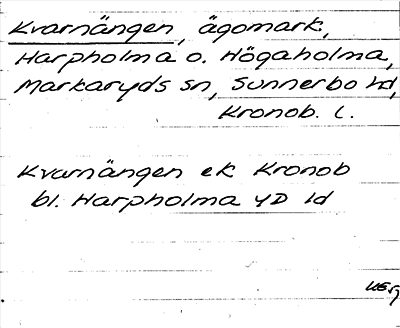 Kvarnängen, ägomark,
Harpholma o. Högaholma,
Markaryds sn, Sunnerbo hd,
Kronob. l.
Kvarnängen ek Kronob
bl. Harpholma 4D 1d